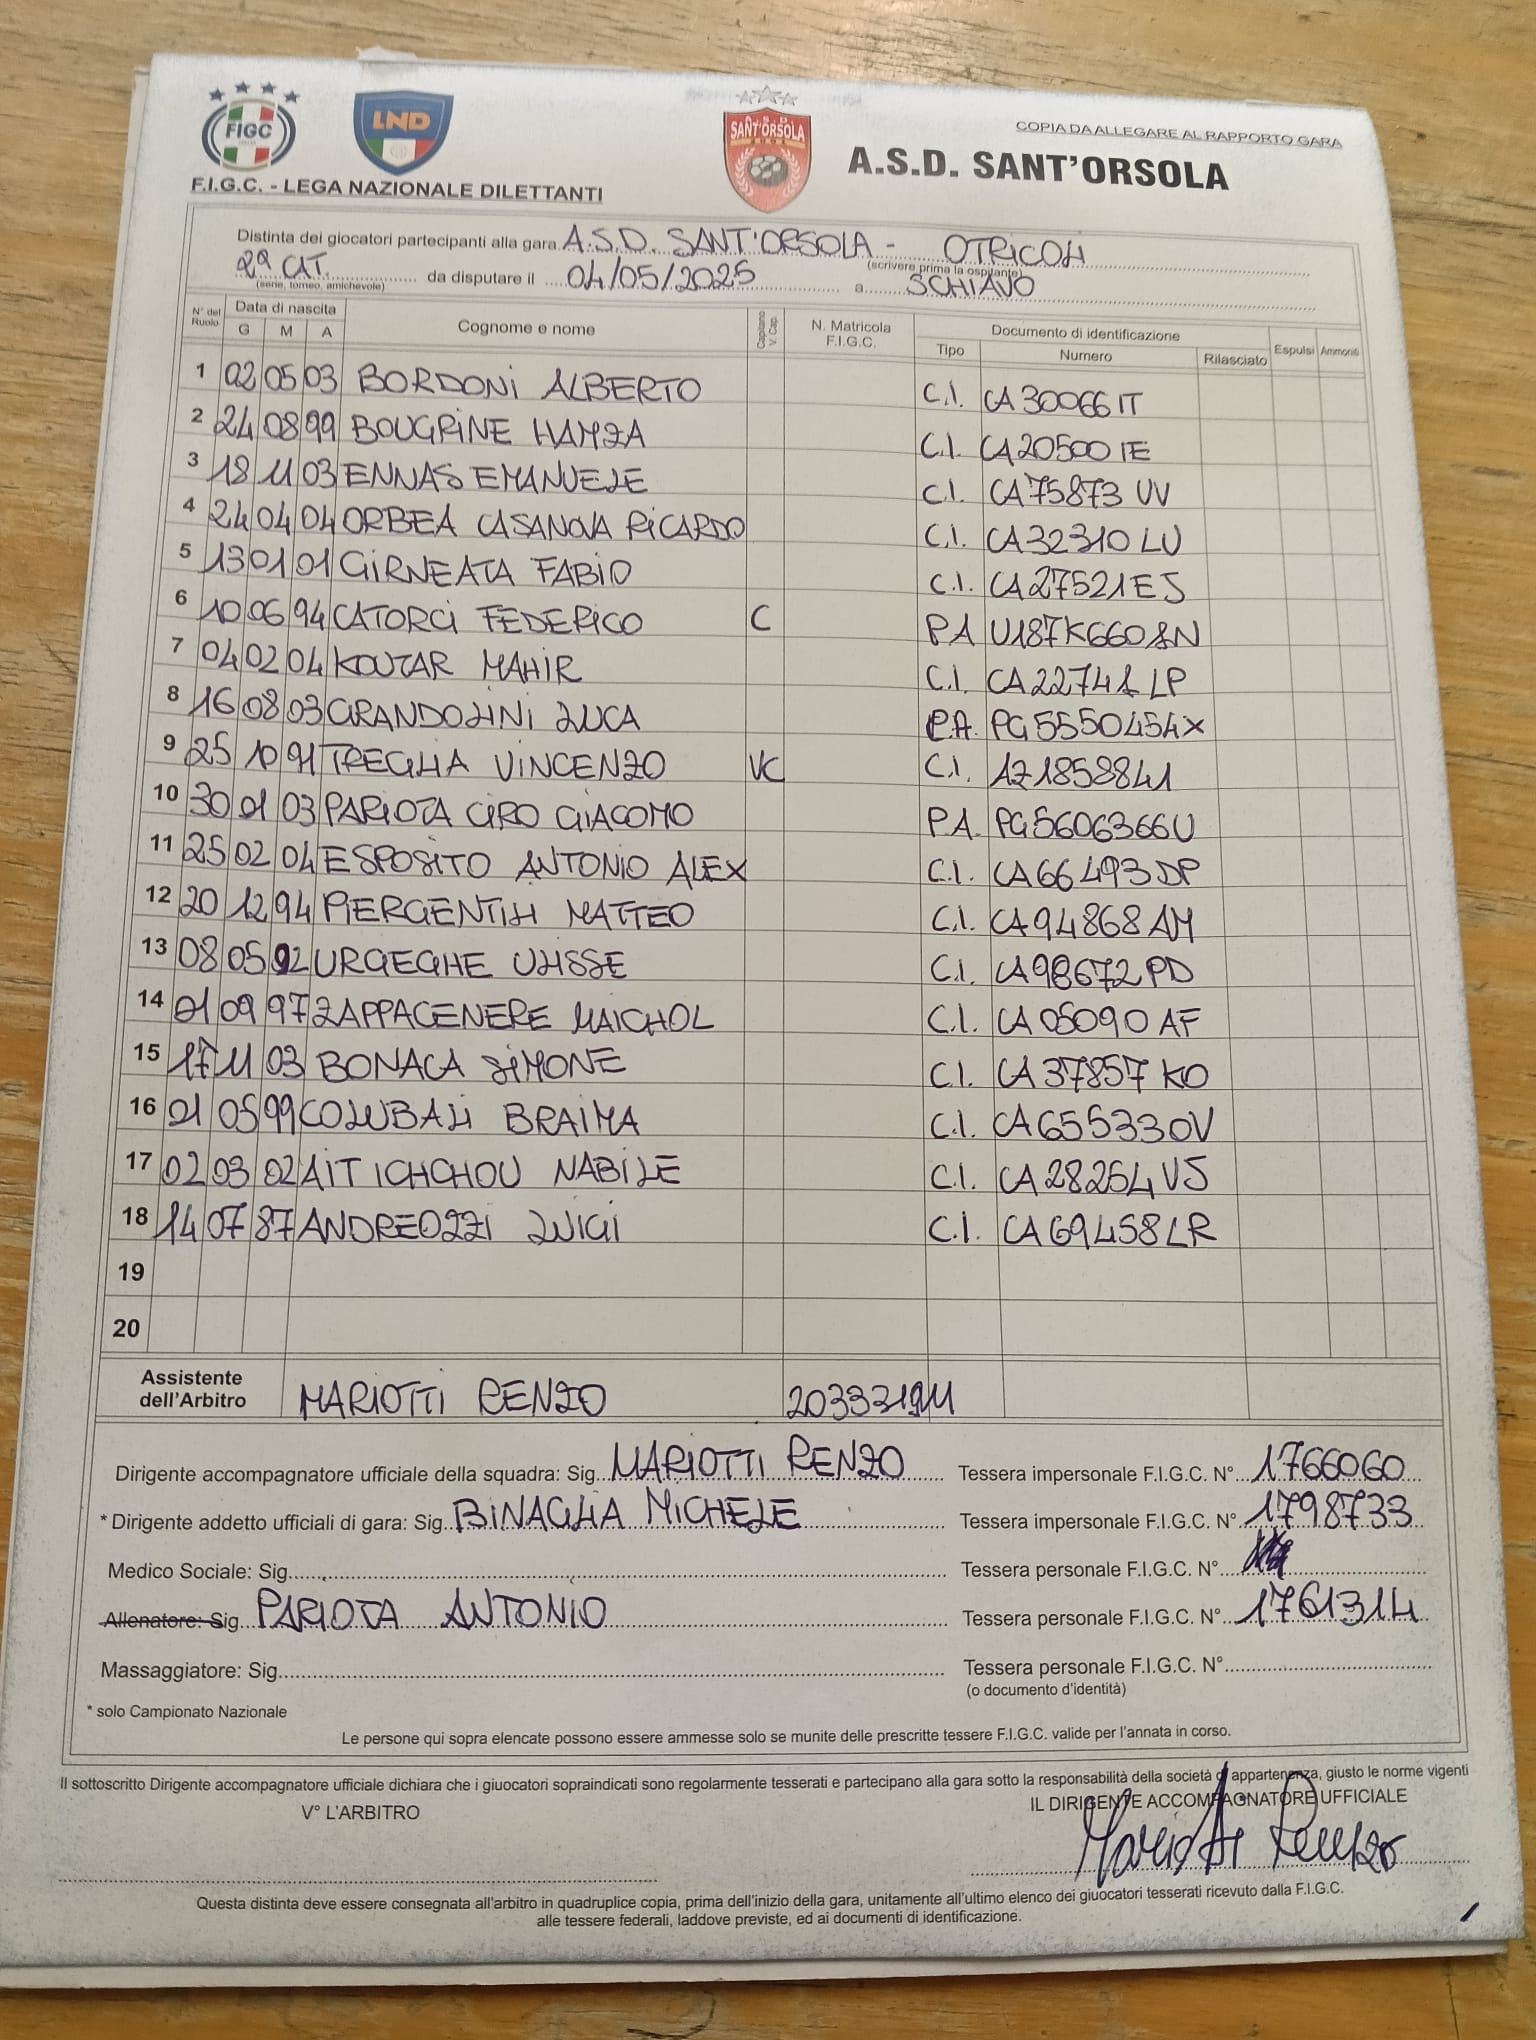 FIGC
LND
A.S.D.
SANT'ORSOLA
COPIA DA ALLEGARE AL RAPPORTO GARA
A.S.D. SANT'ORSOLA
F.I.G.C. - LEGA NAZIONALE DILETTANTI
Distinta dei giocatori partecipanti alla gara A.S.D. SANT'ORSOLA - OTRICOLI
(scrivere prima la ospitante)
2ª CAT. da disputare il 04/05/2025 a SCHIAVO
(serie, torneo, amichevole)
N° del Ruolo Data di nascita Cognome e nome Capitano V. Cap. N. Matricola F.I.G.C. Documento di identificazione Espulsi Ammoniti
G M A Tipo Numero Rilasciato
1 02 05 03 BORDONI ALBERTO C.I. CA30066IT
2 24 08 99 BOUGRINE HAMZA C.I. CA20500IE
3 18 11 03 ENNAS EMANUELE C.I. CA75873UV
4 24 04 04 ORBEA CASANOVA RICARDO C.I. CA32310LU
5 13 01 01 GIRNEATA FABIO C.I. CA27521EJ
6 10 06 94 CATORCI FEDERICO C PA U187K6608N
7 04 02 04 KOUTAR MAHIR C.I. CA22741LP
8 16 08 03 GRANDOLINI LUCA P.A. PG5550454X
9 25 10 91 TREGLIA VINCENZO VC C.I. AZ1858841
10 30 01 03 PARIOTA CIRO GIACOMO PA. PG5606366U
11 25 02 04 ESPOSITO ANTONIO ALEX C.I. CA66493DP
12 20 12 94 PIERGENTILI MATTEO C.I. CA94868AM
13 08 05 92 URGEGHE ULISSE C.I. CA98672PD
14 01 09 97 ZAPPACENERE MAICHOL C.I. CA05090AF
15 17 11 03 BONACA SIMONE C.I. CA37857KO
16 01 05 99 COLUBALI BRAIMA C.I. CA65533OV
17 02 03 02 AIT ICHCHOU NABILE C.I. CA28254VJ
18 14 07 87 ANDREOZZI LUIGI C.I. CA69458LR
19
20
Assistente dell'Arbitro MARIOTTI RENZO
Dirigente accompagnatore ufficiale della squadra: Sig. MARIOTTI RENZO Tessera impersonale F.I.G.C. N° 1766060
* Dirigente addetto ufficiali di gara: Sig. BINAGLIA MICHELE Tessera impersonale F.I.G.C. N° 1798733
Medico Sociale: Sig. Tessera personale F.I.G.C. N°
Allenatore: Sig. PARIOTA ANTONIO Tessera personale F.I.G.C. N° 1761314
Massaggiatore: Sig. Tessera personale F.I.G.C. N°
(o documento d'identità)
* solo Campionato Nazionale
Le persone qui sopra elencate possono essere ammesse solo se munite delle prescritte tessere F.I.G.C. valide per l'annata in corso.
Il sottoscritto Dirigente accompagnatore ufficiale dichiara che i giuocatori sopraindicati sono regolarmente tesserati e partecipano alla gara sotto la responsabilità della società di appartenenza, giusto le norme vigenti
V° L'ARBITRO IL DIRIGENTE ACCOMPAGNATORE UFFICIALE
Mariotti Renzo
Questa distinta deve essere consegnata all'arbitro in quadruplice copia, prima dell'inizio della gara, unitamente all'ultimo elenco dei giuocatori tesserati ricevuto dalla F.I.G.C.
alle tessere federali, laddove previste, ed ai documenti di identificazione.